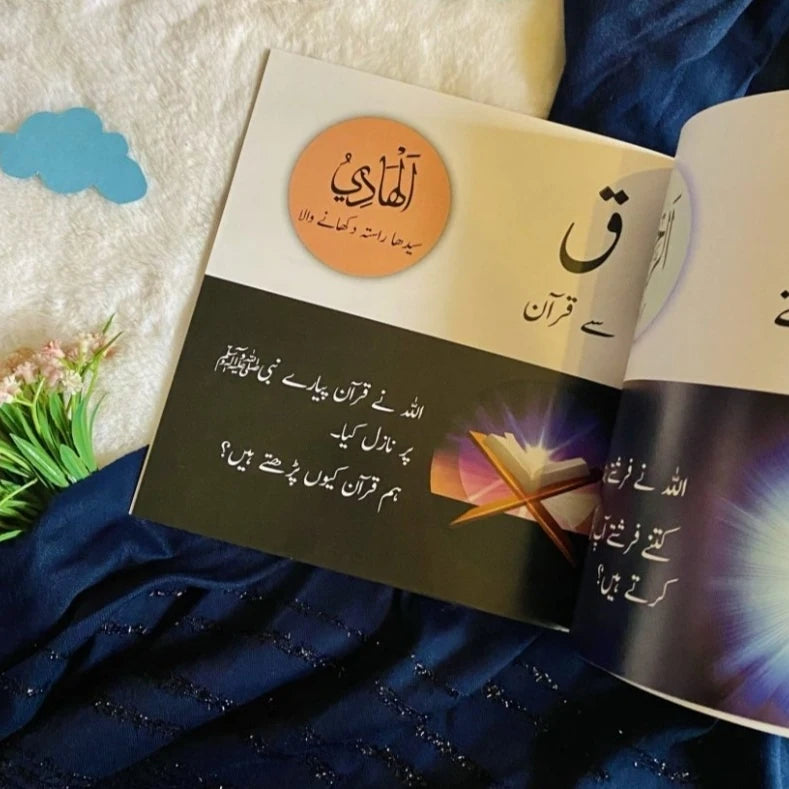 ق
سے قرآن
اَلْهَادِيُ
سیدھا راستہ دکھانے والا
اللہ نے قرآن پیارے نبی ﷺ
پر نازل کیا۔
ہم قرآن کیوں پڑھتے ہیں؟
اللہ نے فرشتے
کتنے فرشتے
کرتے ہیں؟